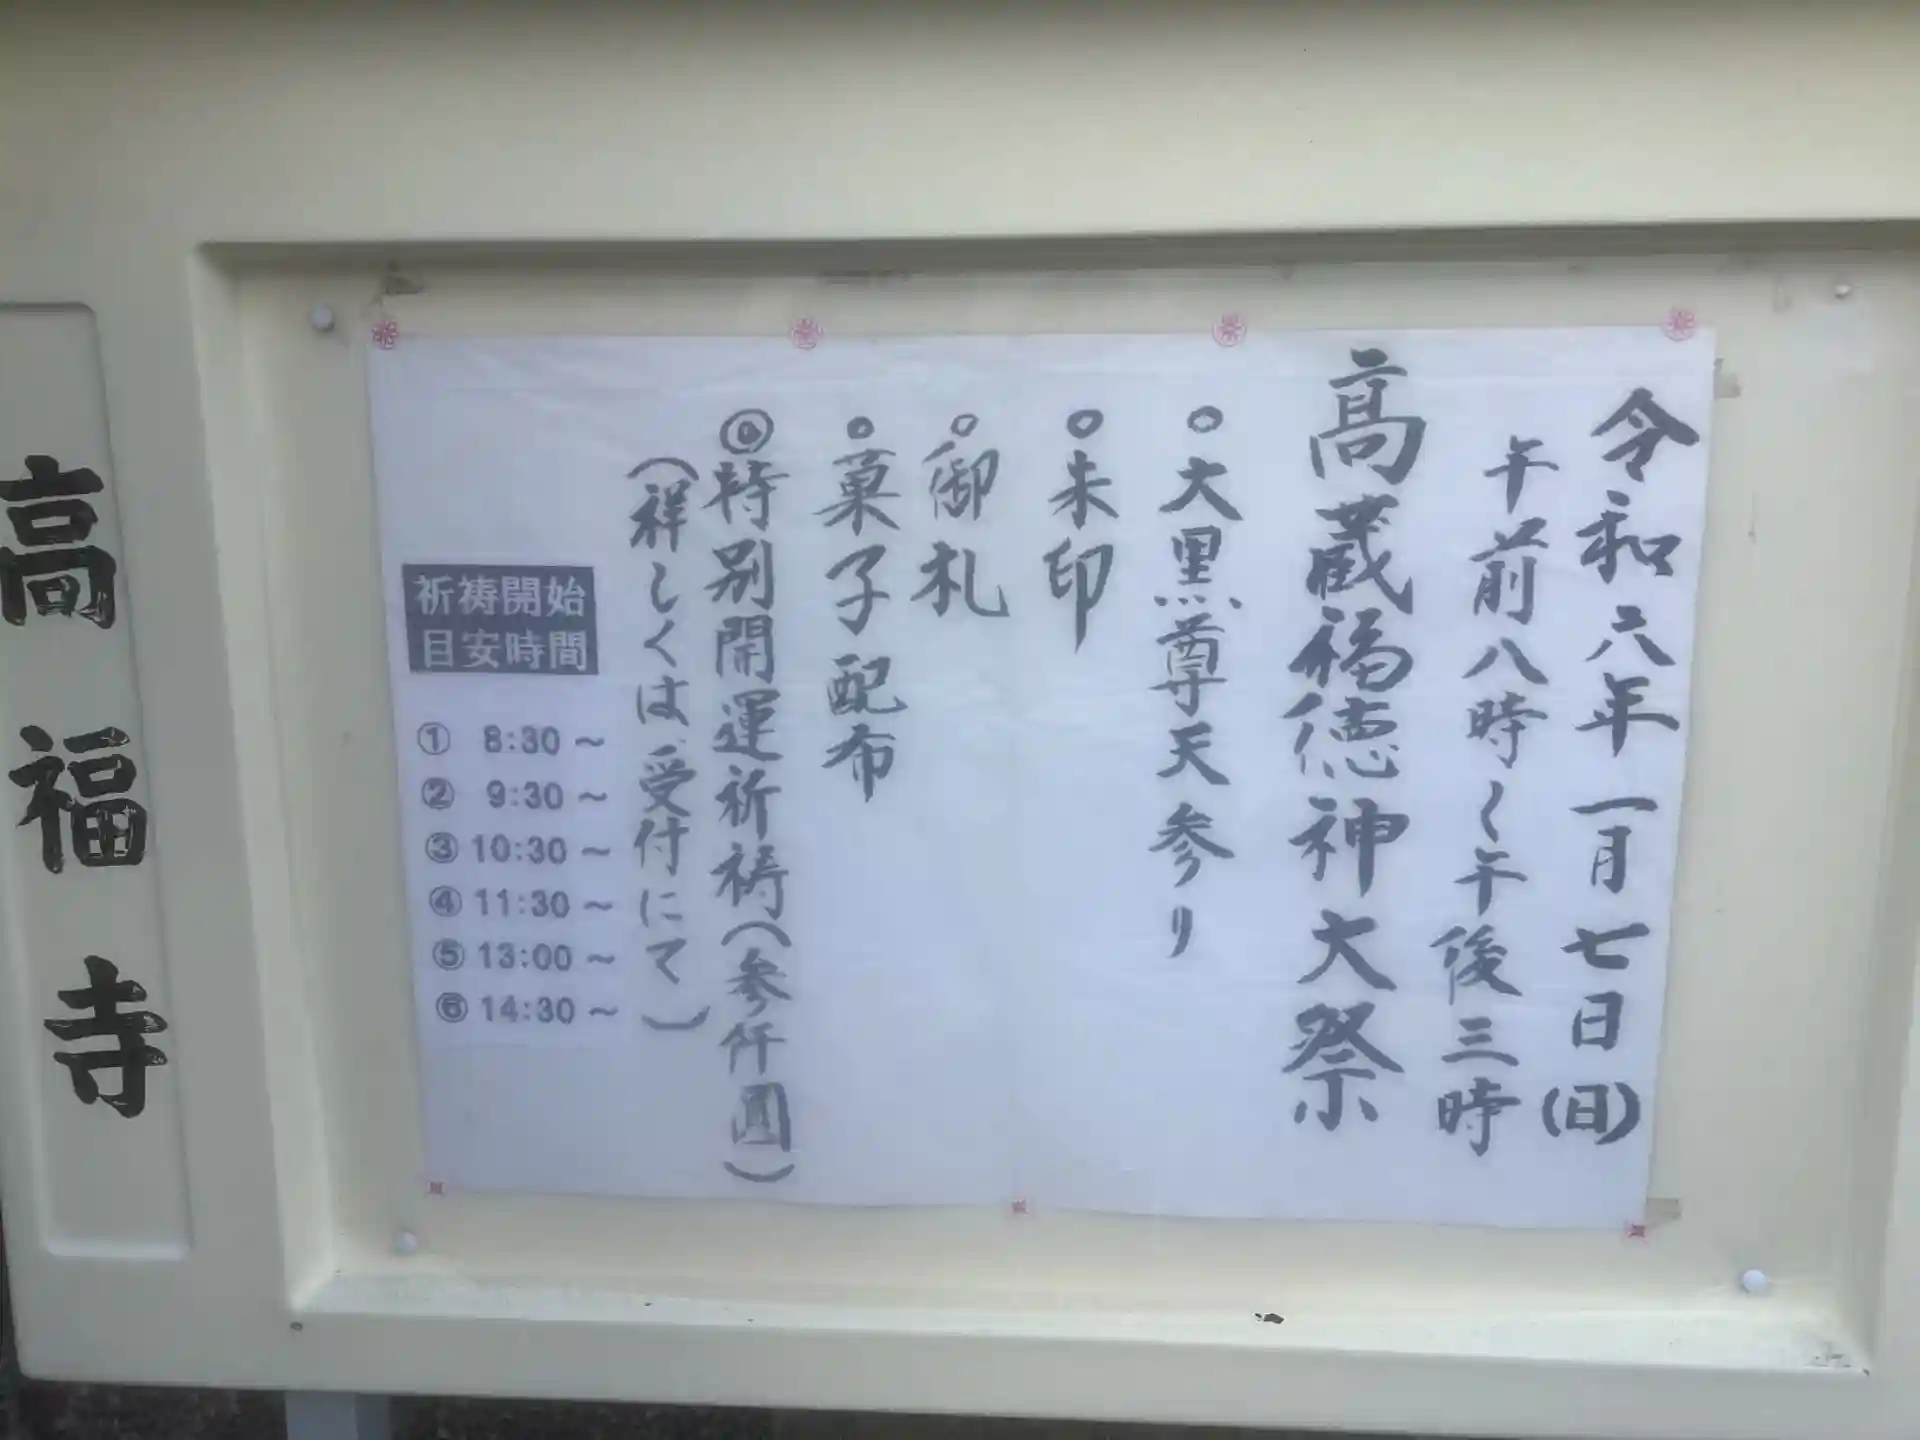 令和六年一月七日(日)
午前八時〜午後三時
高蔵福徳神大祭
○大黒尊天参り
○朱印
○御札
○菓子配布
◎特別開運祈祷(参仟圓)
(祥しくは、受付にて)
祈祷開始
目安時間
① 8:30〜
② 9:30〜
③ 10:30〜
④ 11:30〜
⑤ 13:00〜
⑥ 14:30〜
高福寺